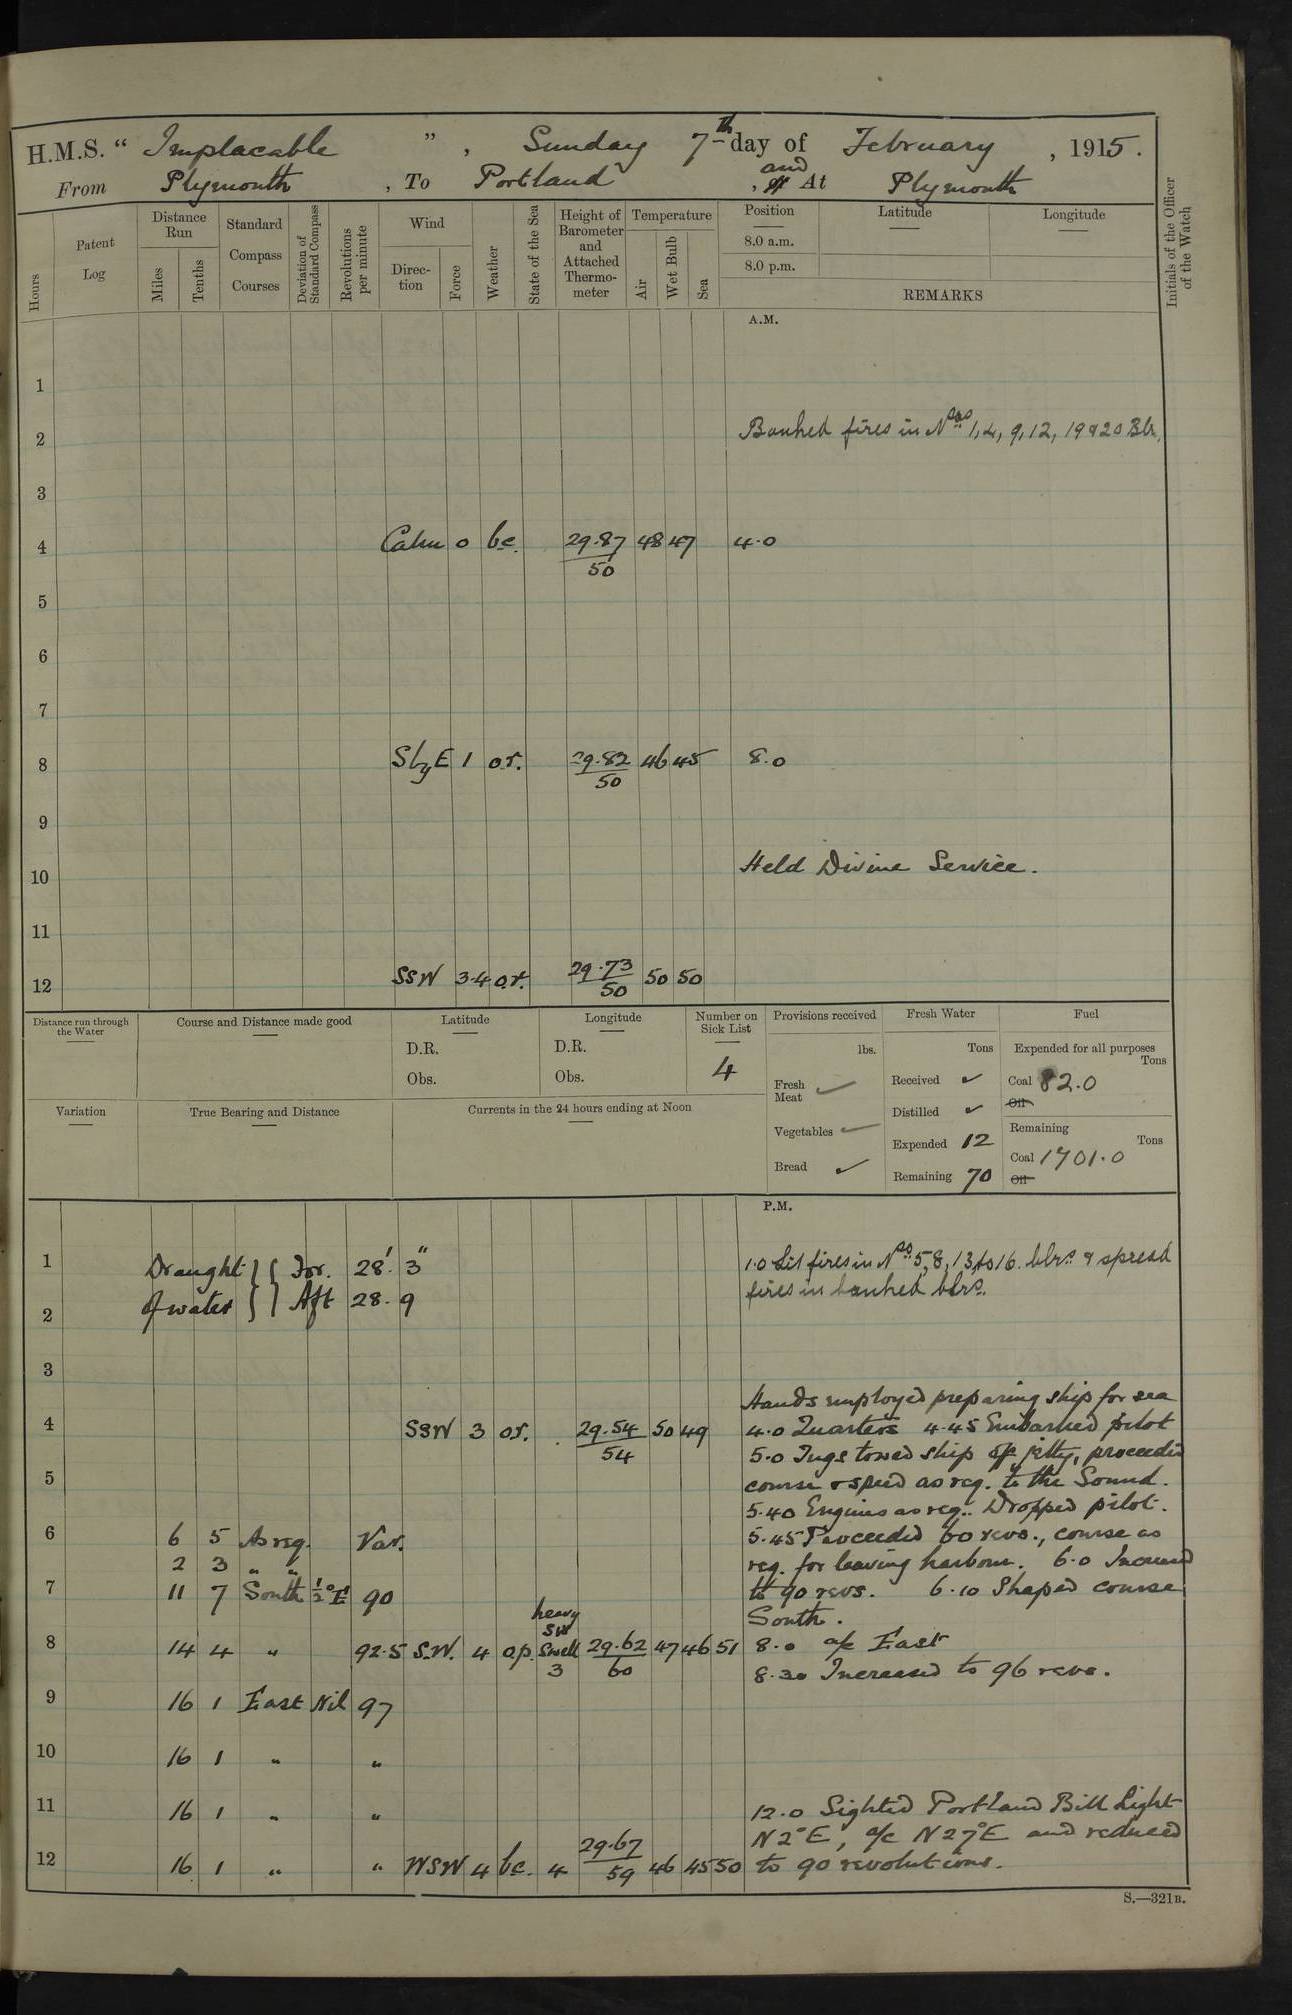 H.M.S. “ Implacable ” , Sunday 7th day of February , 1915 .
From Plymouth , To Portland , and At Plymouth
Hours
Patent Log
Distance Run
Miles
Tenths
Standard Compass Courses
Deviation of Standard Compass
Revolutions per minute
Wind
Direc- tion
Force
Weather
State of the Sea
Height of Barometer and Attached Thermo- meter
Temperature
Air
Wet Bulb
Sea
Position
8.0 a.m.
8.0 p.m.
Latitude
Longitude
REMARKS
Initials of the Officer of the Watch
A.M.
1
2 Banked fires in Nos 1, 4, 9, 12, 19 & 20 Blr.
3
4 Calm 0 bc. 29.87 48 47 4.0
50
5
6
7
8 SbyE 1 o.r. 29.82 46 45 8.0
50
9
10 Held Divine Service.
11
12 SSW 3.4 o.r. 29.73 50 50
50
Distance run through the Water
Course and Distance made good
Latitude
D.R.
Obs.
Longitude
D.R.
Obs.
Number on Sick List
4
Provisions received
lbs.
Fresh Meat ✓
Vegetables ✓
Bread ✓
Fresh Water
Tons
Received ✓
Distilled ✓
Expended 12
Remaining 70
Fuel
Expended for all purposes
Tons
Coal 82.0
Oil
Remaining
Tons
Coal 1701.0
Oil
Variation
True Bearing and Distance
Currents in the 24 hours ending at Noon
P.M.
1 Draught } { For. 28' 3" 1.0 Lit fires in Nos 5, 8, 13, to 16. blrs. & spread
2 of water } { Aft 28. 9 fires in banked blrs.
3
Hands employed preparing ship for sea
4 SSW 3 o.r. 29.54 50 49 4.0 Quarters 4.45 Embarked pilot
54 5.0 Tugs towed ship off jetty, proceeded
5 course & speed as req. to the Sound.
5.40 Engines as req. Dropped pilot.
6 6 5 As req. Var. 5.45 Proceeded 60 revs., course as
2 3 " " req. for leaving harbour. 6.0 Increased
7 11 7 South ½°E 90 to 90 revs. 6.10 Shaped course
South.
heavy
SW
8 14 4 " 92.5 S.W. 4 o.p. Swell 29.62 47 46 51 8.0 a/c East
3 60 8.30 Increased to 96 revs.
9 16 1 East Nil 97
10 16 1 " "
11 16 1 " " 12.0 Sighted Portland Bill Light
N 2°E, a/c N 27°E and reduced
12 16 1 " " WSW 4 bc. 4 29.67 46 45 50 to 90 revolutions.
59
S.—321B.